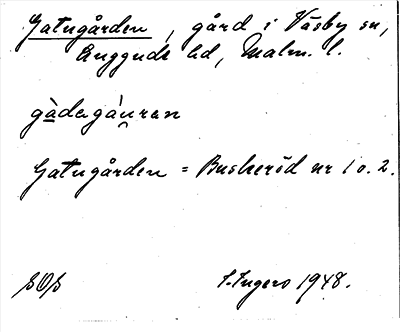 Gatugården, gård i Väsby sn,
Luggude hd, Malm. l.
gàdagáuran
Gatugården = Buskeröd nr 1 o. 2.
SOS
I. Ingers 1948.